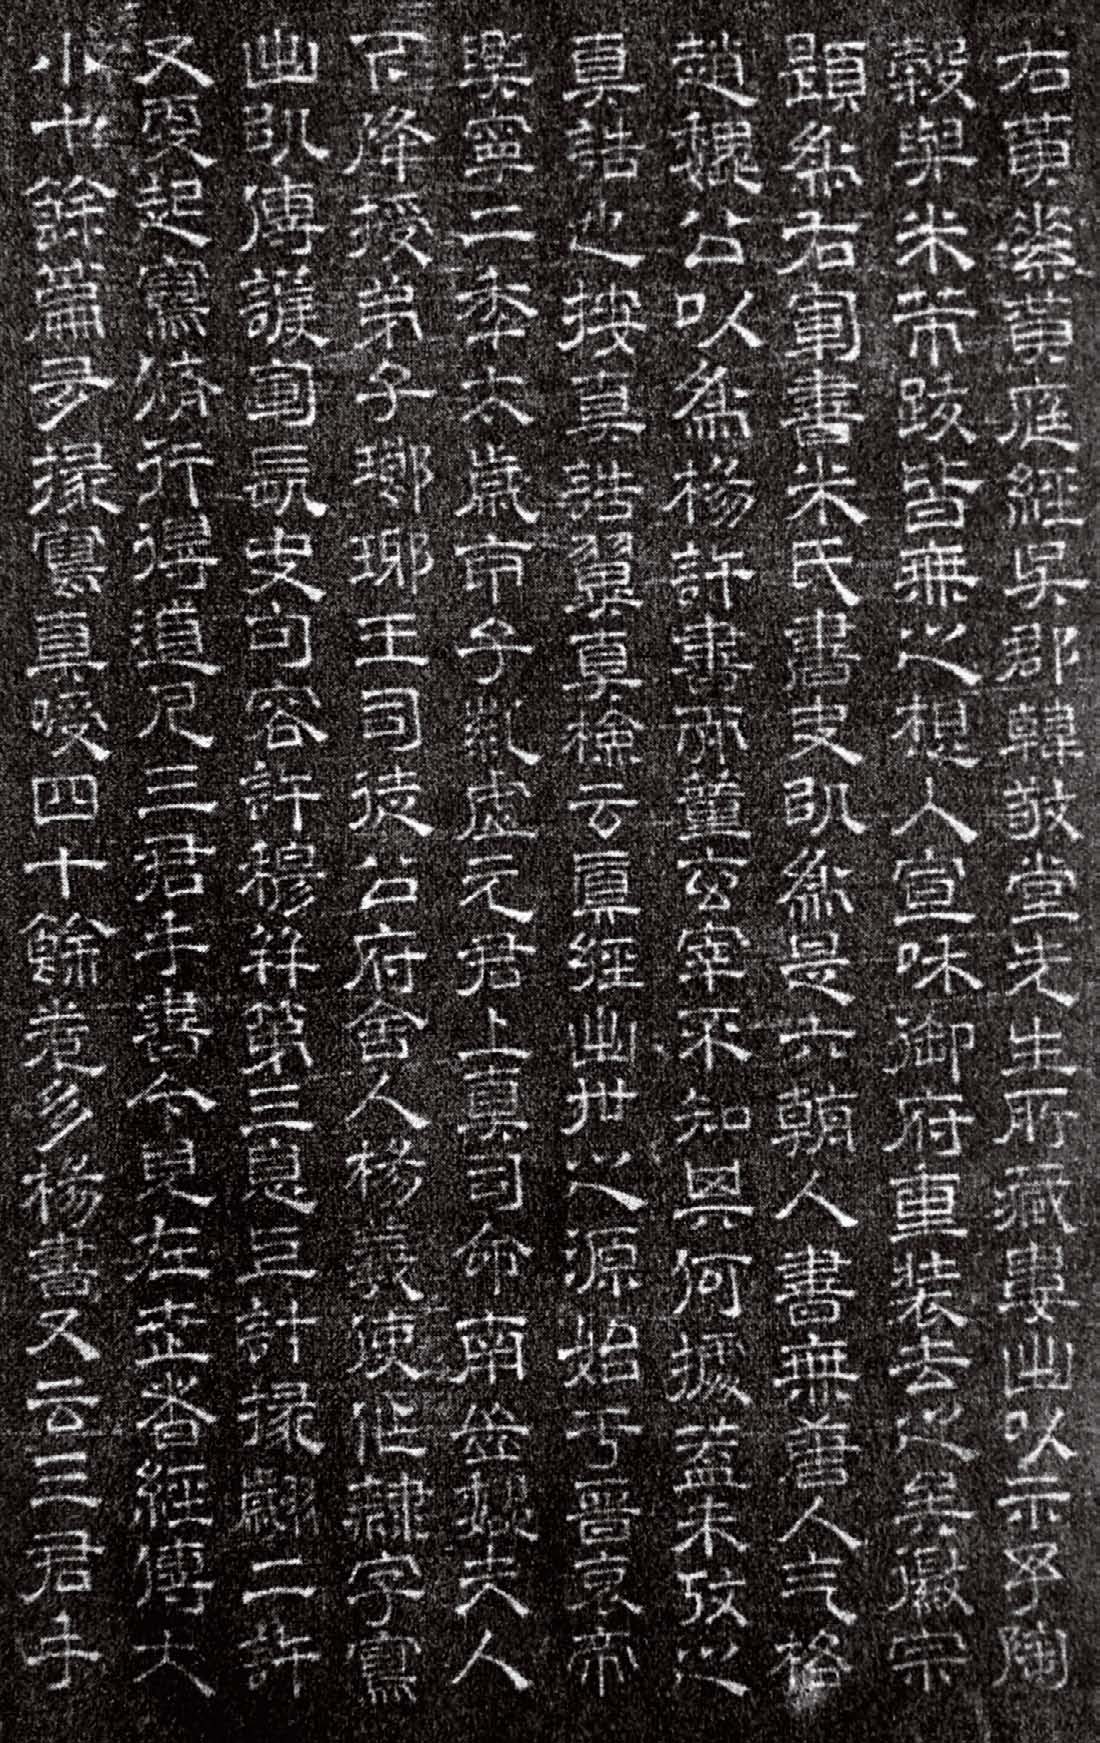 右黃素黃庭經吳郡韓敬堂先生所藏婁出以示予陶
穀與米芾跋皆無之想入宣咊御府重裝去之矣徽宗
題爲右軍書米氏書史以爲是六朝人書無唐人气格
趙魏公以爲楊許書而董玄宰不知其何據蓋未攷之
真誥也按真誥翼真檢云眞經出世之源始于晉哀帝
興寧二年太歲甲子紫虛元君上真司命南嶽魏夫人
下降授弟子瑯琊王司徒公府舍人楊羲使作隸字寫
出以傳護軍長史句容許穆并第三息上計掾翽二許
又更起寫脩行得道凡三君手書今見在世者經傳大
小十餘篇多掾寫真授四十餘卷多楊書又云三君手